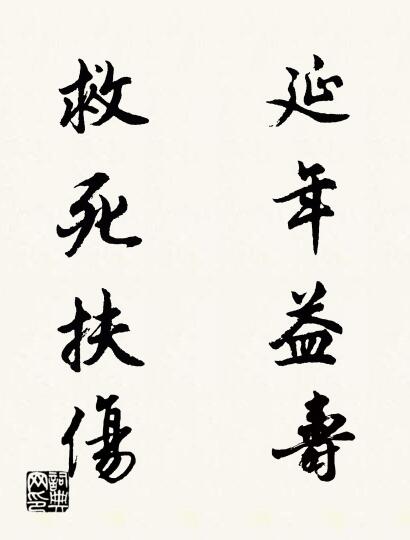 延年益壽
救死扶傷
詞典网印